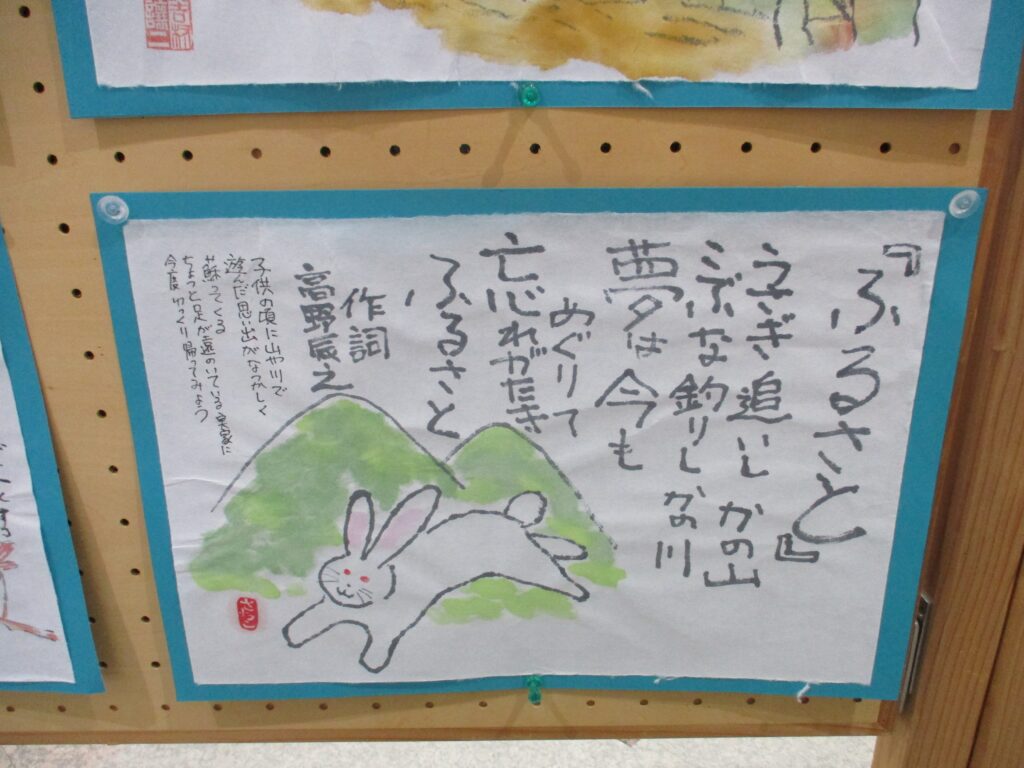 『ふるさと』
うさぎ追いし かの山
こぶな釣りし かの川
夢は今も
めぐりて
忘れがたき
ふるさと
作詞
高野辰之
子供の頃に山や川で
遊んだ思い出がなつかしく
蘇ってくる
ちょっと足が遠のいている実家に
今度ゆっくり帰ってみよう